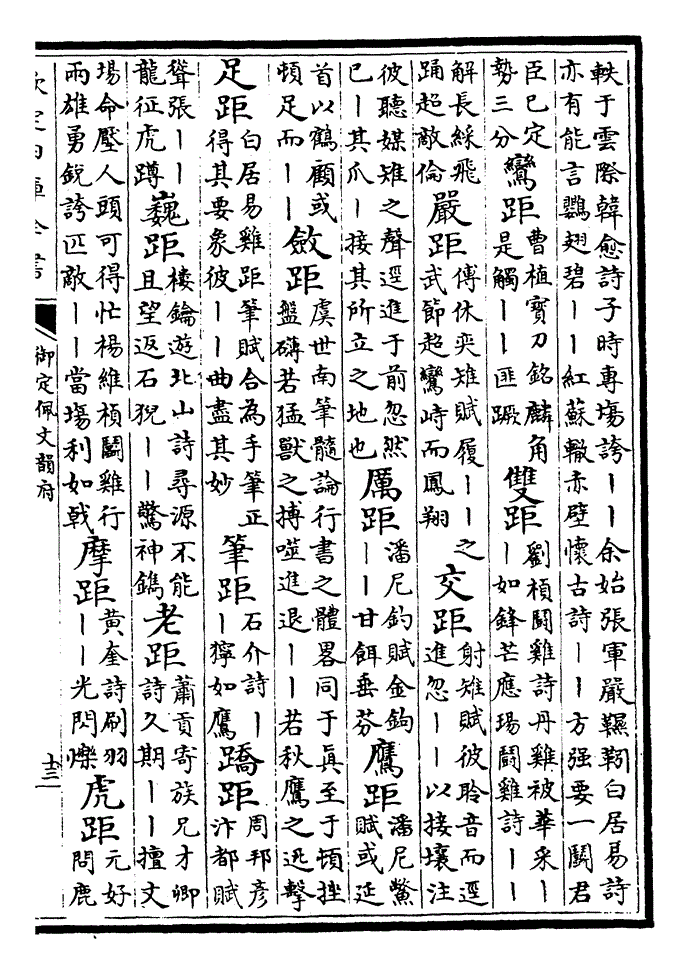 軼于雲際韓愈詩子時專場誇丨丨余始張軍嚴韅靷白居易詩
亦有能言鸚翅碧丨丨紅蘇轍赤壁懷古詩丨丨方强要一鬭君
臣已定
勢三分
鸞距
曹植寶刀銘麟角
是觸丨丨匪蹶
雙距
劉楨鬭雞詩丹雞被華采丨
丨如鋒芒應瑒鬭雞詩丨丨
解長綵飛
踊超敵倫
嚴距
傅休奕雉賦履丨丨之
武節超鸞峙而鳳翔
交距
射雉賦彼聆音而逕
進忽丨丨以接壤注
彼聽媒雉之聲逕進于前忽然
已丨其爪丨接其所立之地也
厲距
潘尼釣賦金鉤
丨丨甘餌垂芬
鷹距
潘尼鱉
賦或延
首以鶴顧或
頓足而丨丨
斂距
虞世南筆髓論行書之體畧同于真至于頓挫
盤礴若猛獸之搏噬進退丨丨若秋鷹之迅擊
足距
白居易雞距筆賦合為手筆正
得其要象彼丨丨曲盡其妙
筆距
石介詩丨
丨獰如鷹
蹻距
周邦彦
汴都賦
聳張丨丨
龍征虎蹲
巍距
樓鑰遊北山詩尋源不能
且望返石猊丨丨驚神鐫
老距
蕭貢寄族兄才卿
詩久期丨丨擅文
場命壓人頭可得忙楊維楨鬭雞行
兩雄勇銳誇匹敵丨丨當塲利如戟
摩距
黄奎詩刷羽
丨丨光閃爍
虎距
元好
問鹿
欽定四庫全書
御定佩文韻府
十三